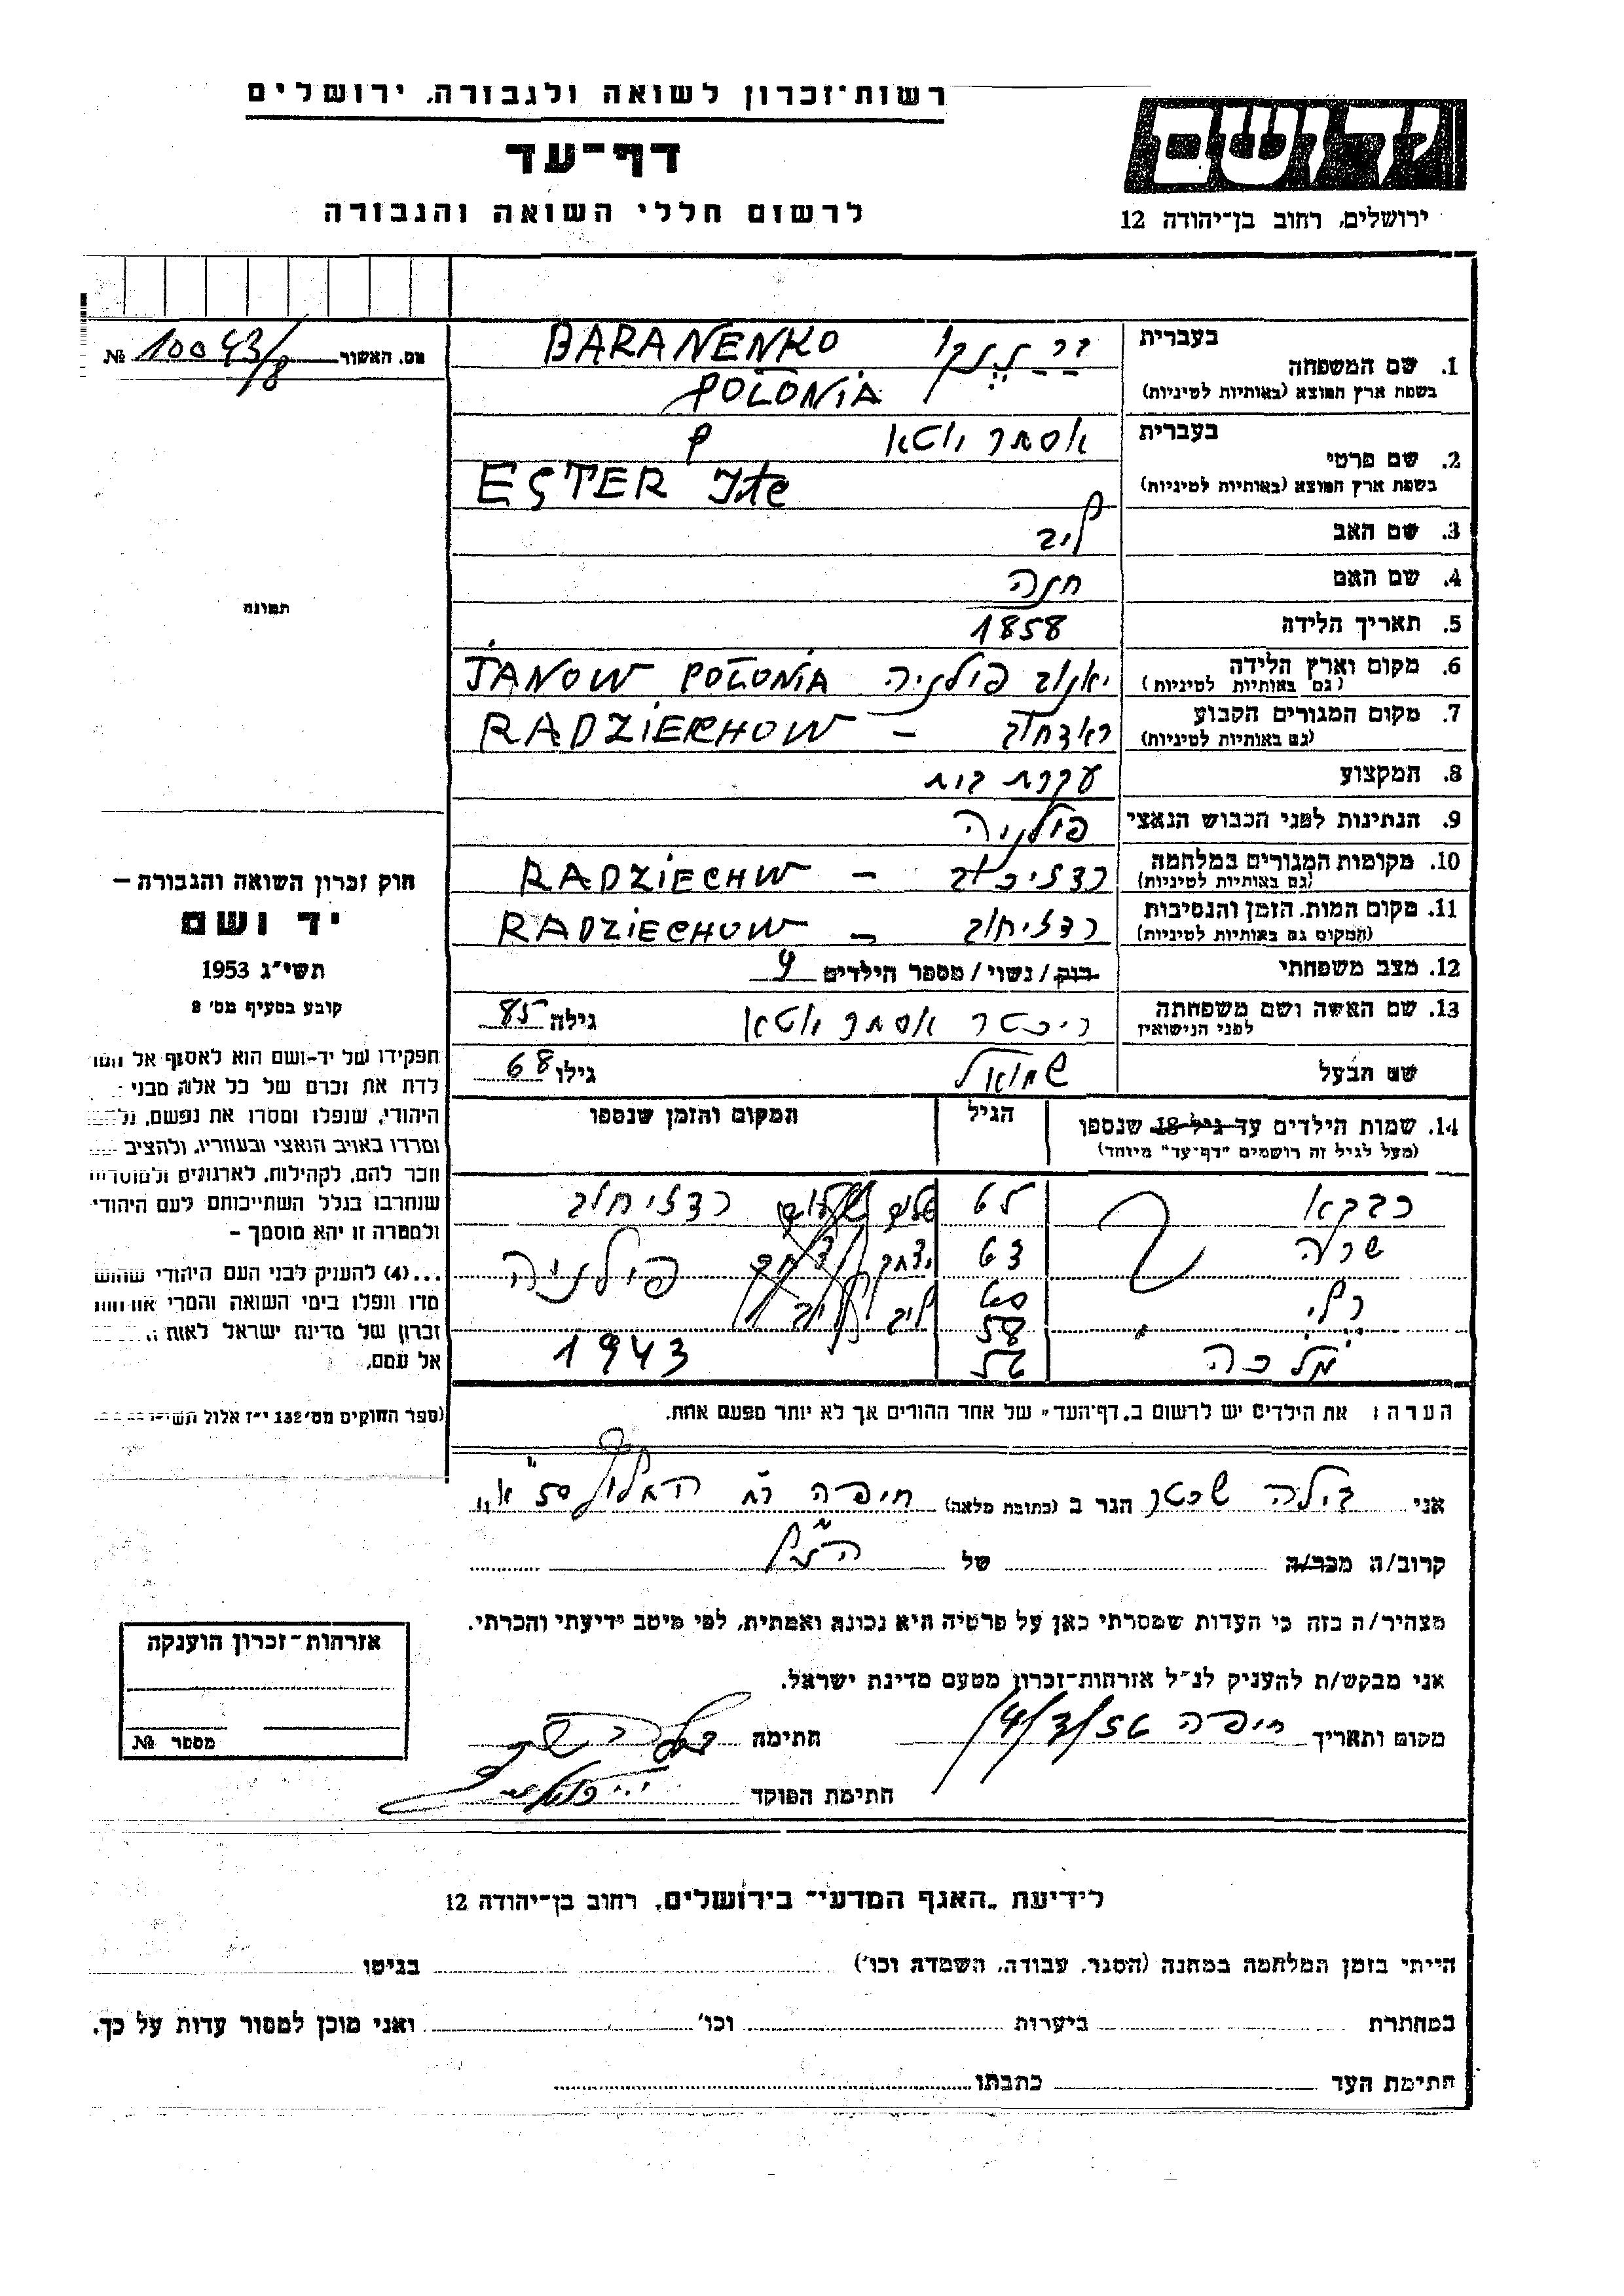 רשות־זכרון לשואה ולגבורה, ירושלים
יד ושם
דף־עד
לרשום חללי השואה והגבורה
ירושלים, רחוב בן־יהודה 12
מס. האשור № 10043/8
1. שם המשפחה בעברית
BARANENKO
בשפת ארץ המוצא (באותיות לטיניות) POLONIA
2. שם פרטי בעברית אסתר איטא
בשפת ארץ המוצא (באותיות לטיניות) ESTER Ite
3. שם האב ליב
4. שם האם חנה
5. תאריך הלידה 1858
6. מקום וארץ הלידה (גם באותיות לטיניות) יאנוב פולניה JANOW POLONIA
7. מקום המגורים הקבוע (גם באותיות לטיניות) ראדחוב – RADZIECHOW
8. המקצוע עקרת בית
9. הנתינות לפני הכבוש הנאצי פולניה
10. מקומות המגורים במלחמה (גם באותיות לטיניות) רדזיכוב – RADZIECHW
11. מקום המות, הזמן והנסיבות (המקום גם באותיות לטיניות) רדזיחוב – RADZIECHOW
12. מצב משפחתי רווק / נשוי / מספר הילדים
13. שם האשה ושם משפחתה לפני הנישואין ריכטר אסתר איטא גילה 85
שם הבעל שמואל גילו 68
14. שמות הילדים עד גיל 18 שנספו הגיל המקום והזמן שנספו
(מעל לגיל זה רושמים "דף־עד" מיוחד)
רדזיחוב
שרה
פולניה
מלכה 1943
הערה: את הילדים יש לרשום ב„דף־העד" של אחד ההורים אך לא יותר מפעם אחת.
תמונה
חוק זכרון השואה והגבורה –
יד ושם
תשי"ג 1953
קובע בסעיף מס' 2
תפקידו של יד-ושם הוא לאסוף אל
לדת את זכרם של כל אלה מבני
היהודי, שנפלו ומסרו את נפשם,
ומרדו באויב הנאצי ובעוזריו, ולהציב
וזכר להם, לקהילות, לארגונים ולמוסדות
שנחרבו בגלל השתייכותם לעם היהודי
ולמטרה זו יהא מוסמך –
...(4) להעניק לבני העם היהודי שהוש
מדו ונפלו בימי השואה והמרי אזרחות
זכרון של מדינת ישראל לאות
אל עמם.
(ספר החוקים מס' 132 י"ז אלול
אני בילה שכטר הגר ב (כתובת מלאה) חיפה רח
קרוב/ה מכר/ה של
מצהיר/ה בזה כי העדות שמסרתי כאן על פרטיה היא נכונה ואמתית, לפי מיטב ידיעתי והכרתי.
אני מבקש/ת להעניק לנ"ל אזרחות-זכרון מטעם מדינת ישראל.
מקום ותאריך חיפה חתימה
חתימת הפוקד
אזרחות-זכרון הוענקה
מספר №
לידיעת „האגף המדעי" בירושלים, רחוב בן־יהודה 12
הייתי בזמן המלחמה במחנה (הסגר, עבודה, השמדה וכו') בגיטו
במחתרת ביערות וכו' ואני מוכן למסור עדות על כך.
חתימת העד כתבתו